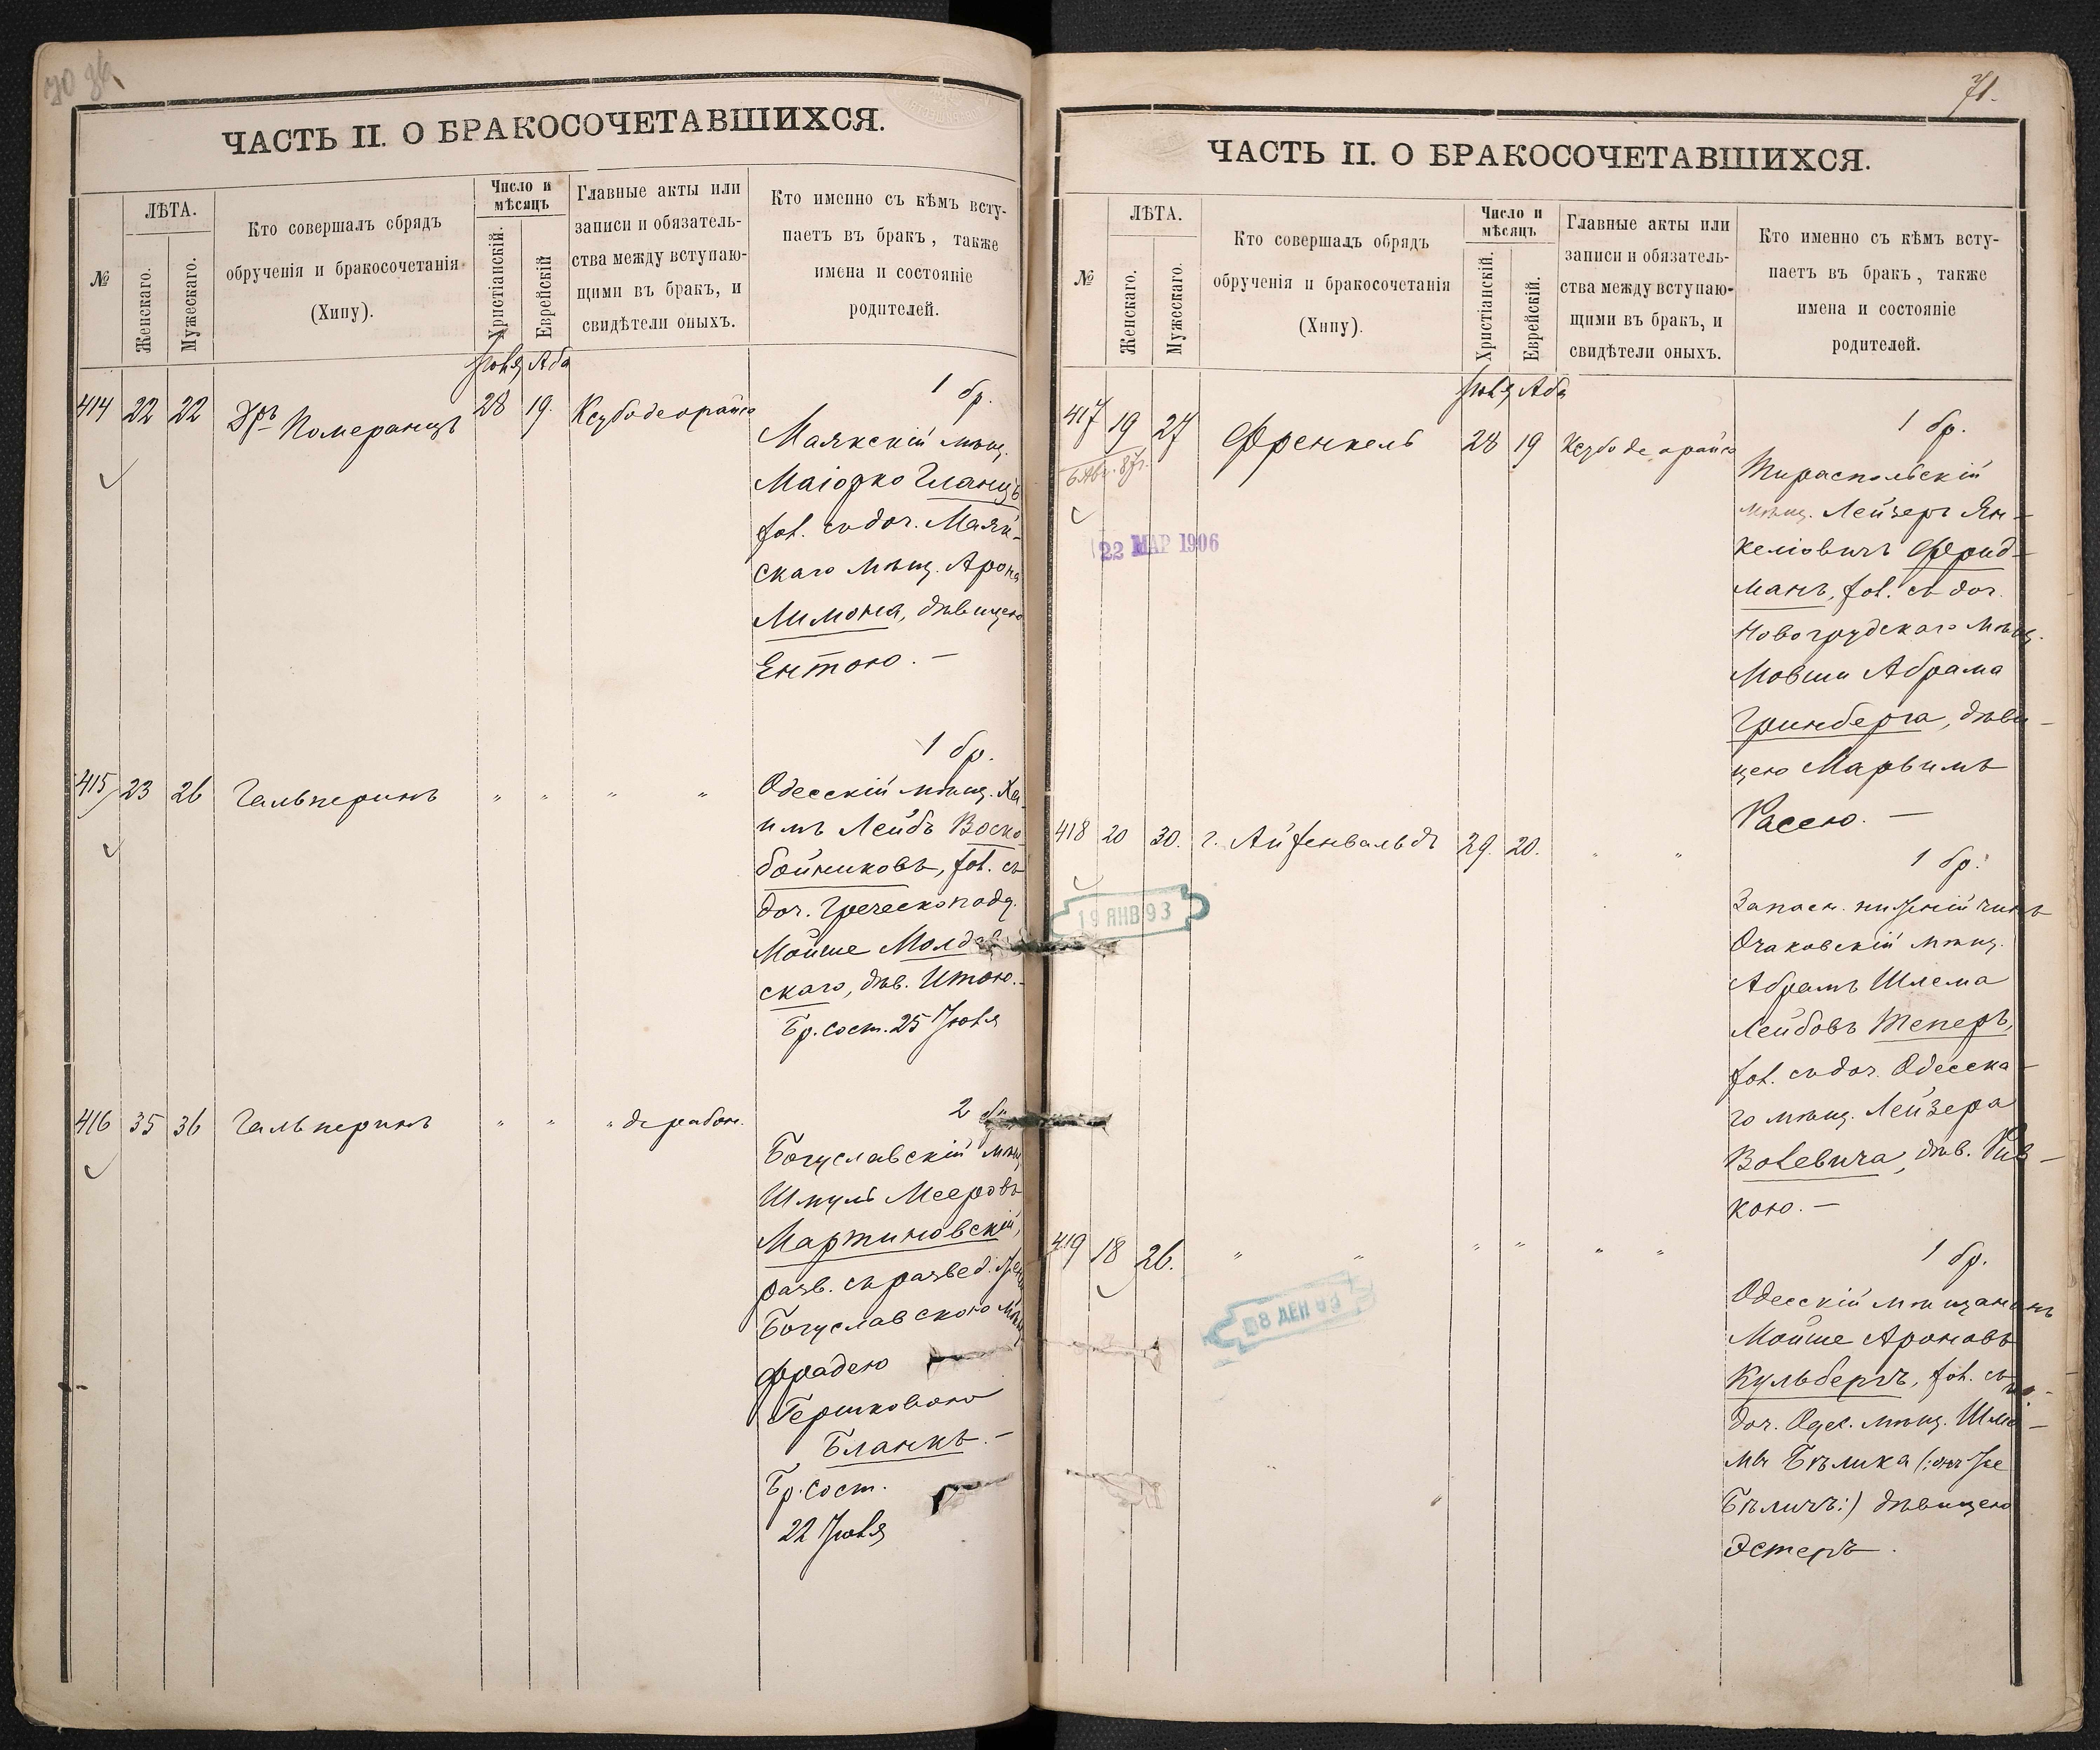 70 зв.
ЧАСТЬ II. О БРАКОСОЧЕТАВШИХСЯ.
№
ЛѢТА.
Женскаго.
Мужескаго.
Кто совершалъ обрядъ
обрученія и бракосочетанія
(Хипу).
Число и
мѣсяцъ
Христіанскій.
Еврейскій
Главные акты или
записи и обязатель-
ства между вступаю-
щими въ бракъ, и
свидѣтели оныхъ.
Кто именно съ кѣмъ всту-
паетъ въ бракъ, также
имена и состояніе
родителей.
Іюля Аба
414 22 22 Др. Померанцъ 28 19. Ксубо деорайсо
1 бр.
Маякскій мѣщ.
Маіорко Гланцъ
хол. съ доч. Маяк-
скаго мѣщ. Арона
Лимона, дѣвицею
Ентою. —
415 23 26 Гальперинъ " " " "
1 бр.
Одесскій мѣщ. Ха-
имъ Лейбъ Воско-
бойниковъ, хол. съ
доч. Греческоподд.
Мойше Молдав
скаго, дѣв. Итою.-
Бр. сост. 25 Іюля
416 35 36 Гальперинъ " " " дерабон.
2 бр.
Богуславскій мѣщ
Шмуль Мееровъ
Мартиновскій,
разв. съ развед. жен
Богуславскою мѣщ
Фрадею
Гершковою
Бланкъ. —
Бр. сост.
22 Іюля
71.
ЧАСТЬ II. О БРАКОСОЧЕТАВШИХСЯ.
№
ЛѢТА.
Женскаго.
Мужескаго.
Кто совершалъ обрядъ
обрученія и бракосочетанія
(Хипу).
Число и
мѣсяцъ
Христіанскій.
Еврейскій.
Главные акты или
записи и обязатель-
ства между вступаю-
щими въ бракъ, и
свидѣтели оныхъ.
Кто именно съ кѣмъ всту-
паетъ въ бракъ, также
имена и состояніе
родителей.
Іюля Аба
417 19 27 Френкель 28 19 Ксубо деорайсо
6 Авг. 87г.
22 МАР 1906
1 бр.
Тираспольскій
мѣщ. Лейзеръ Ян-
келіовичъ Фрид-
манъ, хол. съ доч.
Новогрудскаго мѣщ.
Мовши Абрама
Гринберга, дѣви-
цею Марьимъ
Рассею. —
418 20 30. г. Айхенвальдъ 29. 20. " "
19 ЯНВ 93
1 бр.
Запасн. нижній чинъ
Очаковскій мѣщ.
Абрамъ Шлема
Лейбовъ Теперъ,
хол. съ доч. Одесска-
го мѣщ. Лейзера
Волевича, дѣв. Рив-
кою. —
419 18 26. " " " " " "
8 ДЕК 93
1 бр.
Одесскій мѣщанинъ
Мойше Ароновъ
Кульбергъ, хол. съ
доч. Одес. мѣщ. Шле-
мы Бѣлика (:онъ же
Бѣличъ:) дѣвицею
Эстеръ.